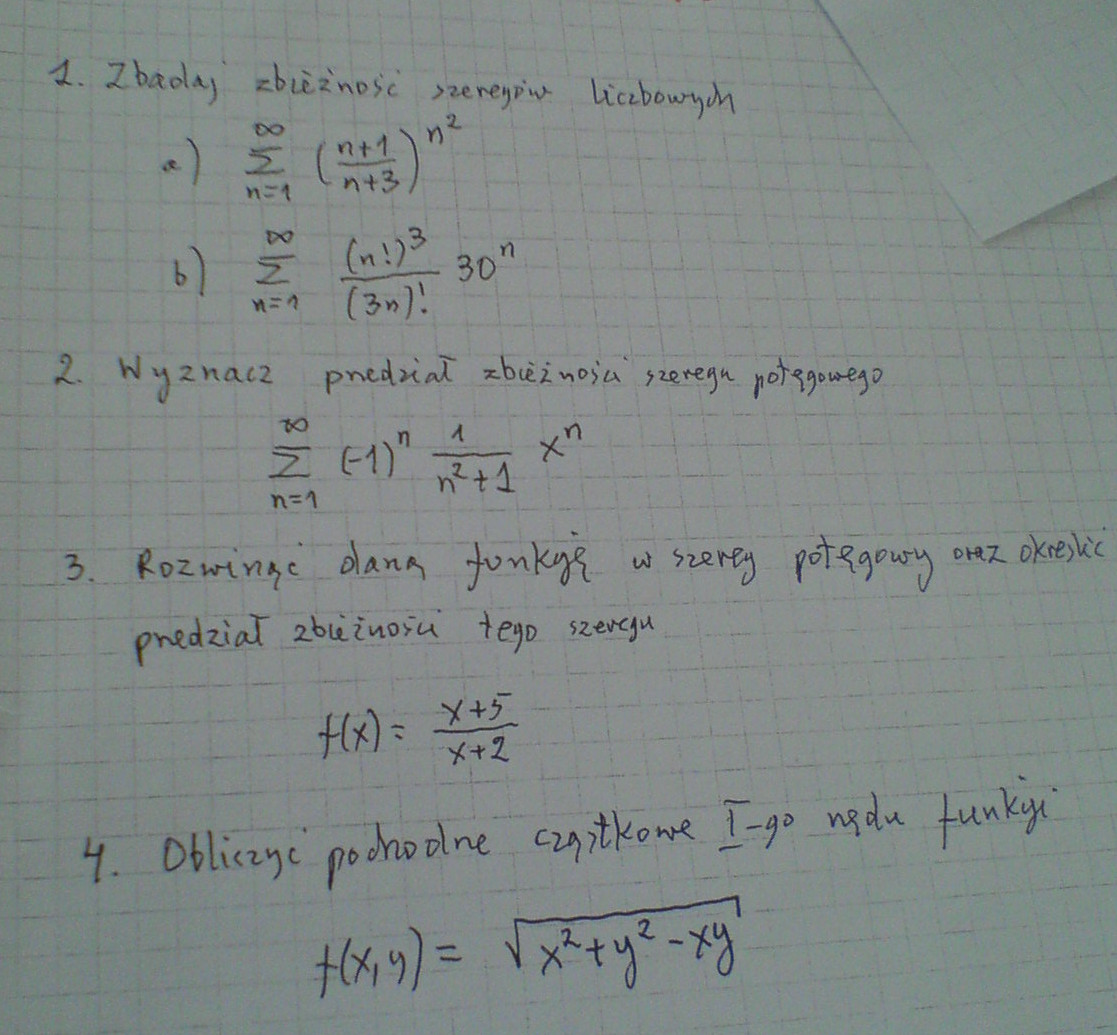 1. Zbadaj zbieżność szeregów liczbowych
a) ∞∑n=1 ((n+1)/(n+3))^n²
b) ∞∑n=1 (n!)³/(3n)! 30ⁿ
2. Wyznacz przedział zbieżności szeregu potęgowego
∞∑n=1 (-1)ⁿ 1/(n²+1) xⁿ
3. Rozwinąć daną funkcję w szereg potęgowy oraz określić
przedział zbieżności tego szeregu
f(x) = (x+5)/(x+2)
4. Obliczyć pochodne cząstkowe I-go rzędu funkcji
f(x,y) = √(x²+y²-xy)